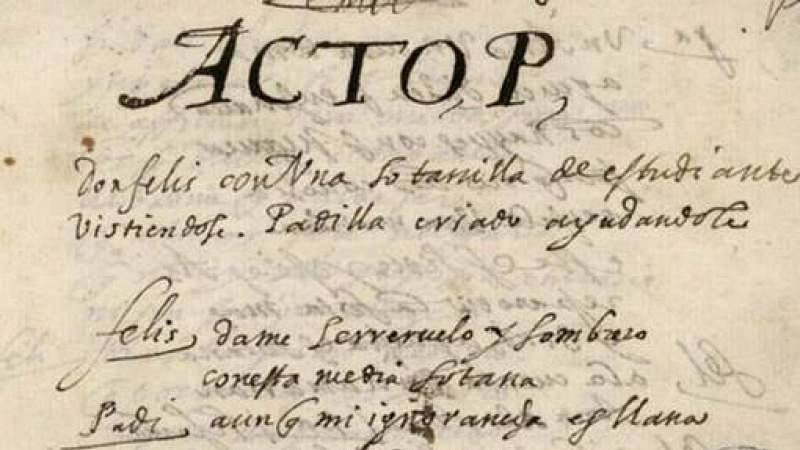 ACTO, P,
don felis con Vna sotanilla de estudiante
vistiendose. Padilla criado ayudandole
felis dame ferreruelo y sombrero
con esta media sotana
Padi aunq mi ignorancia es llana